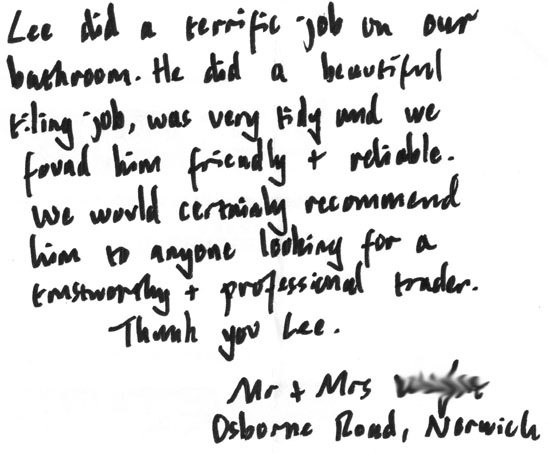 Lee did a terrific job on our
bathroom. He did a beautiful
tiling job, was very tidy and we
found him friendly + reliable.
We would certainly recommend
him to anyone looking for a
trustworthy + professional trader.
Thank you Lee.
Mr + Mrs
Osborne Road, Norwich